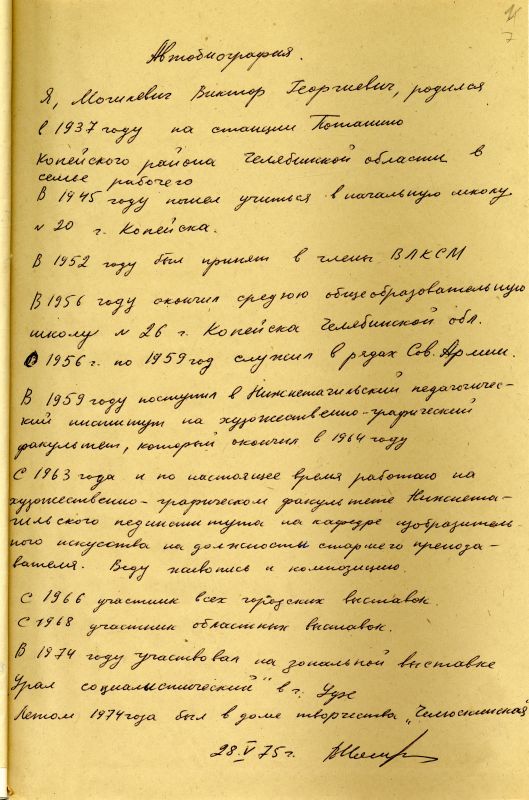 7
Автобиография.
Я, Могилевич Виктор Георгиевич, родился
в 1937 году на станции Поташно
Копейского района Челябинской области в
семье рабочего
В 1945 году пошел учиться в начальную школу
№ 20 г. Копейска.
В 1952 году был принят в члены ВЛКСМ
В 1956 году окончил среднюю общеобразовательную
школу № 26 г. Копейска Челябинской обл.
С 1956 г. по 1959 год служил в рядах Сов. Армии.
В 1959 году поступил в Нижнетагильский педагогичес-
кий институт на художественно-графический
факультет, который окончил в 1964 году
С 1963 года и по настоящее время работаю на
художественно-графическом факультете Нижнета-
гильского пединститута на кафедре изобразитель-
ного искусства на должности старшего препода-
вателя. Веду живопись и композицию.
С 1966 участник всех городских выставок.
С 1968 участник областных выставок.
В 1974 году участвовал на зональной выставке
Урал социалистический" в г. Уфе
Летом 1974 года был в доме творчества „Челюскинская
28 V 75 г.